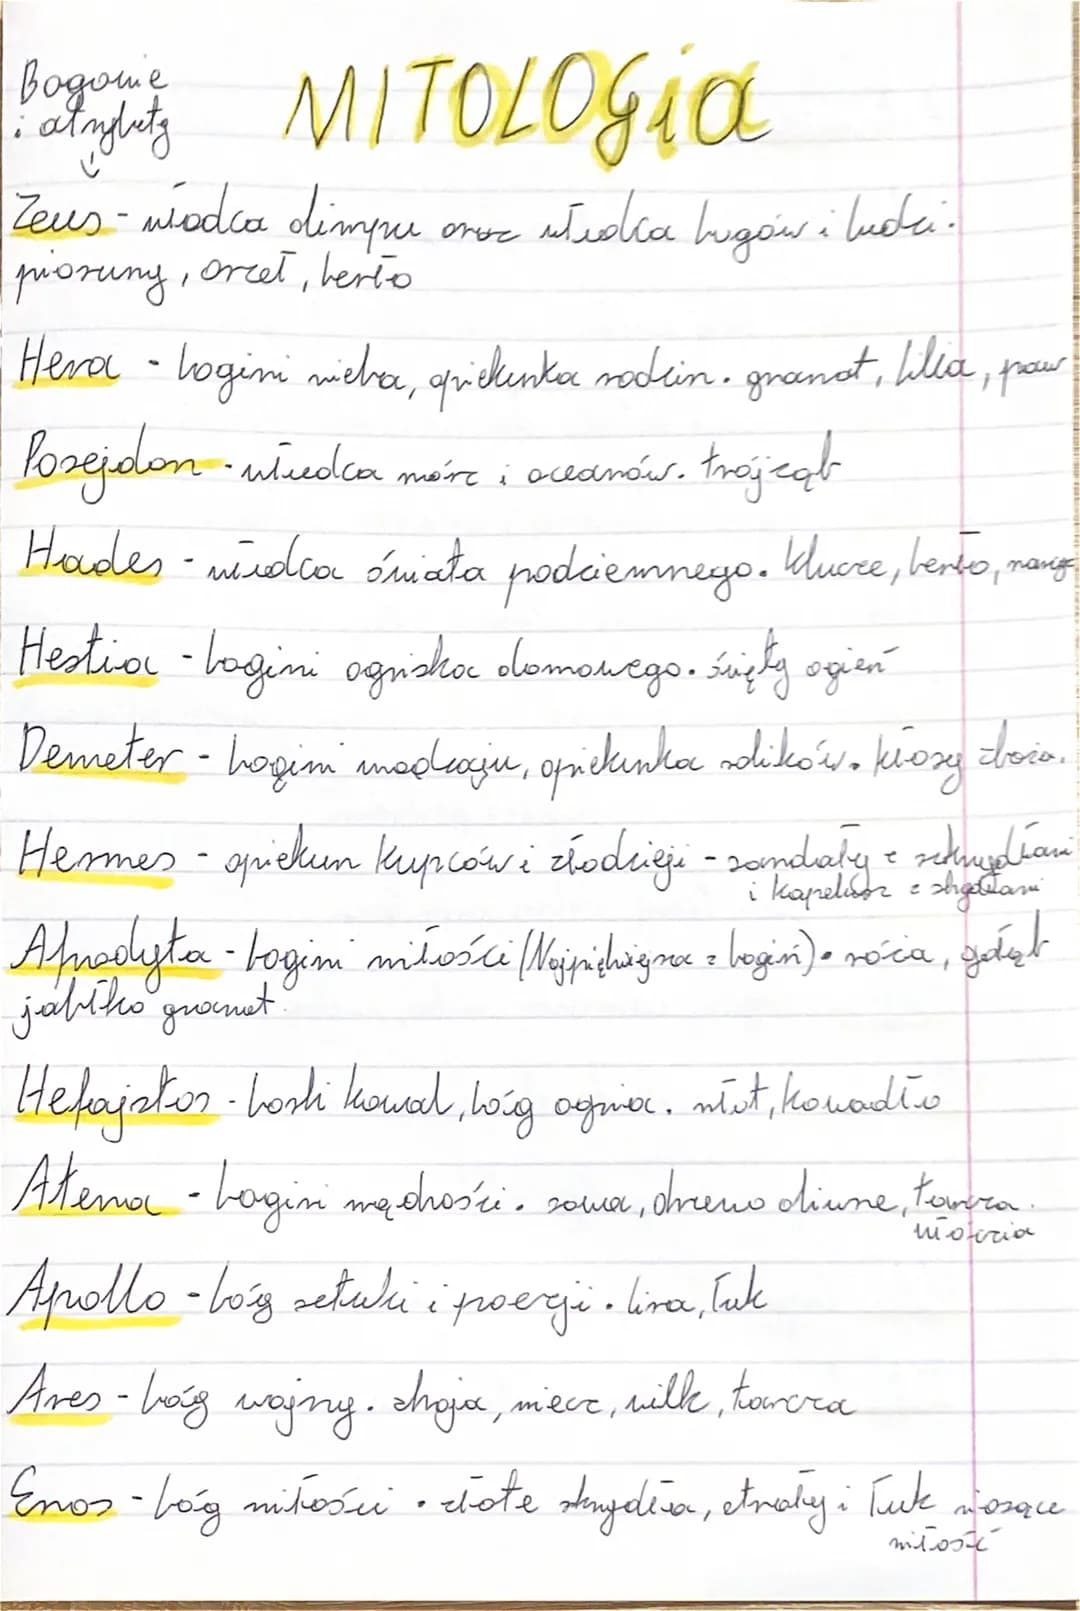 MITOLOGia
Bogowie
i atrybuty
Zeus - władca olimpu oraz władca bogów i ludzi.
pioruny, orzeł, berło
Hera - bogini nieba, opiekunka rodzin. granat, lilia, paw
Posejdon - władca mórz i oceanów. trójząb
Hades - władca świata podziemnego. klucze, berło,
Hestia - bogini ogniska domowego. święty ogień
Demeter - bogini urodzaju, opiekunka rolików. kłosy zboża.
Hermes - opiekun kupców i złodzieji - sandały z skrzydłami
i kapelusz z skrzydłami
Afrodyta - bogini miłości (Najpiękniejsza z bogiń). róża, gołąb
jabłko granat.
Hefajstos - boski kowal, bóg ognia. młot, kowadło
Atena - bogini mądrości. sowa, drzewo oliwne, tarcza.
włócznia
Apollo - bóg sztuki i poezji. lira, łuk
Ares - bóg wojny. zbroja, miecz, wilk, tarcza
Eros - bóg miłości. złote skrzydła, strzały i łuk niosące
miłość